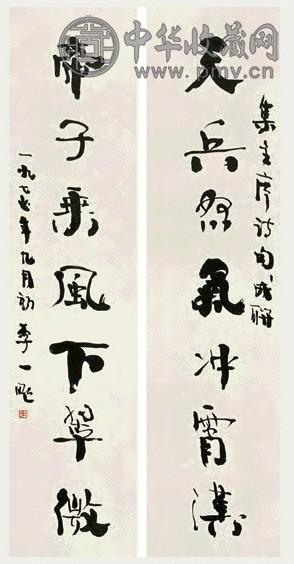 中华收藏网
www.pmv.cn
集主席诗句成聯
天兵怒氣冲霄漢
帝子乘風下翠微
一九七 年九月初 李一氓